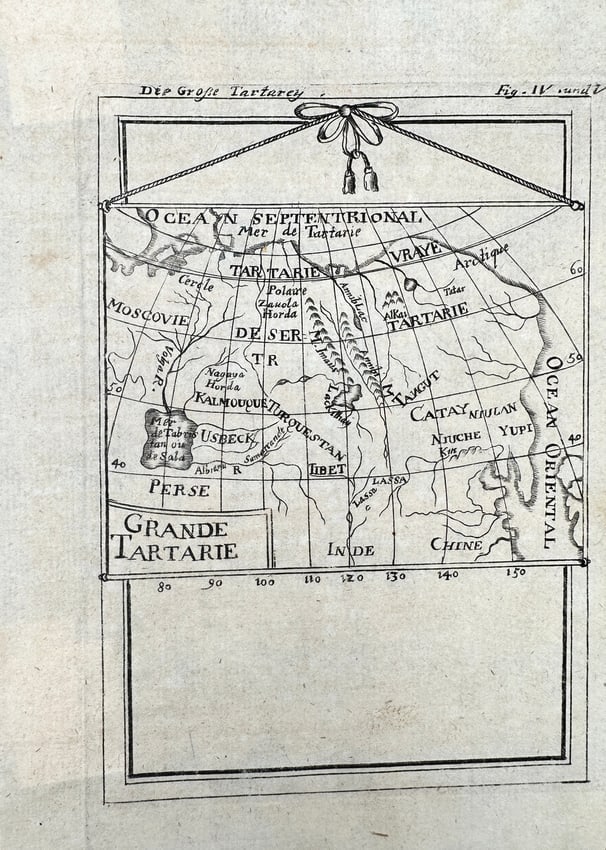 Die Große Tartarey.
Fig. IV. und V
OCEAN SEPTENTRIONAL
Mer de Tartarie
TARTARIE
VRAYE
Arctique
60
Cercle
Polaire
Zauola
Horda
Tatar
Alkai
TARTARIE
MOSCOVIE
DESER
TR
M. Imaus
50
50
Volga R.
Nagaya
Horda
KALMOUQUE
TURQUESTAN
TANGUT
CATAY
NIULAN
NIUCHE
YUPI
Kin
OCEAN ORIENTAL
Mer
de Tabris
tan ou
de Sala
USBECK
Samarcande
40
40
R
TIBET
LASSA
Lassa
PERSE
GRANDE
TARTARIE
INDE
CHINE
80
90
100
110
120
130
140
150